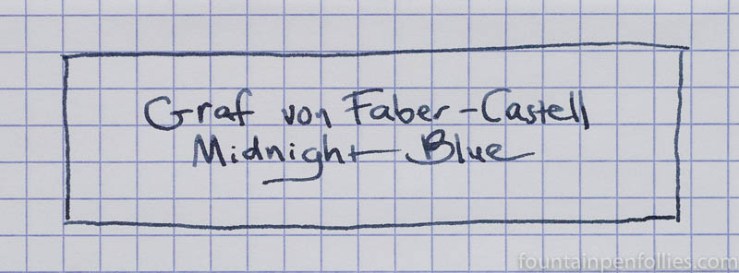 Graf von Faber-Castell
Midnight Blue
fountainpenfollies.com